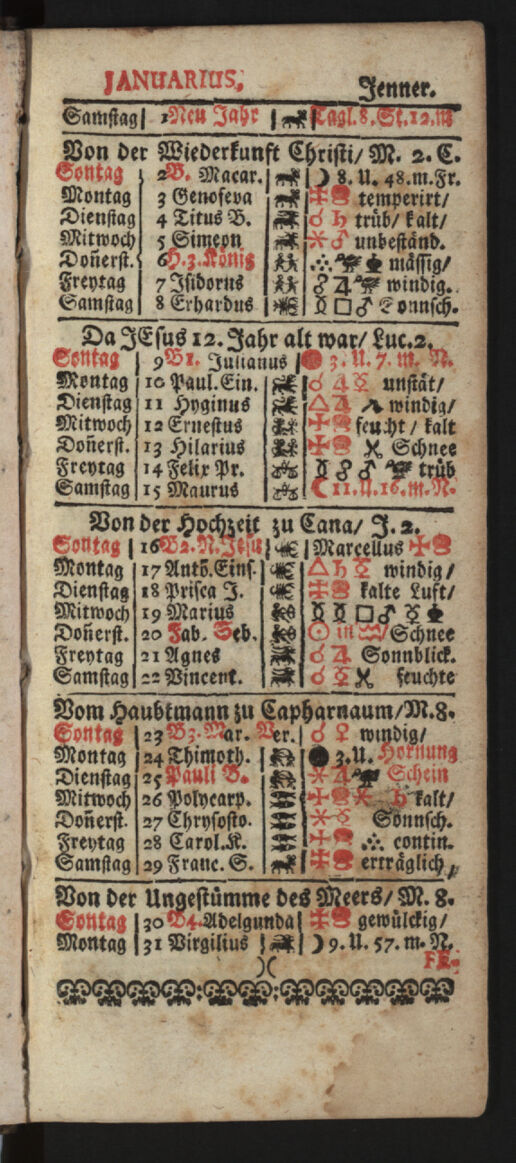 JANUARIUS. Jenner.
Samstag 1 Neu Jahr Tagl. 8. St. 12. m
Von der Wiederkunft Christi/ M. 2. C.
Sontag 2 B. Macar. ☽ 8. U. 48. m. Fr.
Montag 3 Genofeva temperirt/
Dienstag 4 Titus B. ☌ ♄ trüb/ kalt/
Mitwoch 5 Simeon ⚹ ♂ unbeständ.
Don̄erst. 6 H. 3. König mässig/
Freytag 7 Isidorus ☍ ♃ windig.
Samstag 8 Erhardus ☿ □ ♂ Sonnsch.
Da JEsus 12. Jahr alt war/ Luc. 2.
Sontag 9 B1. Julianus 3. U. 7. m. N.
Montag 10 Paul. Ein. ☌ ♃ ☿ unstät/
Dienstag 11 Hyginus △ ♃ windig/
Mitwoch 12 Ernestus feucht/ kalt
Don̄erst. 13 Hilarius Schnee
Freytag 14 Felix Pr. ☿ ☍ ♂ trüb
Samstag 15 Maurus ☾ 11. U. 16. m. N.
Von der Hochzeit zu Cana/ J. 2.
Sontag 16 B2. N. Jesu Marcellus
Montag 17 Anth. Eins. △ ♄ ☿ windig/
Dienstag 18 Prisca J. kalte Luft/
Mitwoch 19 Marius ☿ ☿ □ ♂ ☿
Don̄erst. 20 Fab. Seb. ☉ in ♒/ Schnee
Freytag 21 Agnes ☌ ♃ Sonnblick.
Samstag 22 Vincent. ☌ ☿ feuchte
Vom Haubtmann zu Capharnaum/ M. 8.
Sontag 23 B3. Mar. Ver. ☌ ♀ windig/
Montag 24 Thimoth. 3. U. Hornung
Dienstag 25 Pauli B. ⚹ ♃ Schein
Mitwoch 26 Polycarp. ⚹ ♄ kalt/
Don̄erst. 27 Chrysosto. ⚹ ☿ Sonnsch.
Freytag 28 Carol. K. contin.
Samstag 29 Franc. S. erträglich/
Von der Ungestümme des Meers/ M. 8.
Sontag 30 B4. Adelgunda gewülckig/
Montag 31 Virgilius ☽ 9. U. 57. m. N.
)( FE-